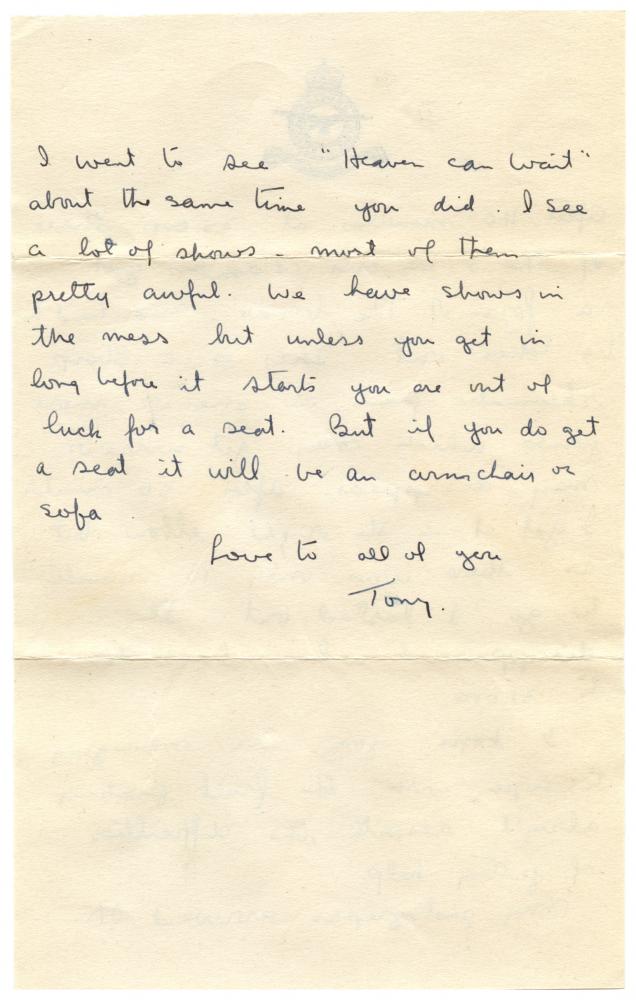 I went to see "Heaven can Wait"
about the same time you did. I see
a lot of shows - most of them
pretty awful. We have shows in
the mess but unless you get in
long before it starts you are out of
luck for a seat. But if you do get
a seat it will be an armchair or
sofa.
Love to all of you
Tony.